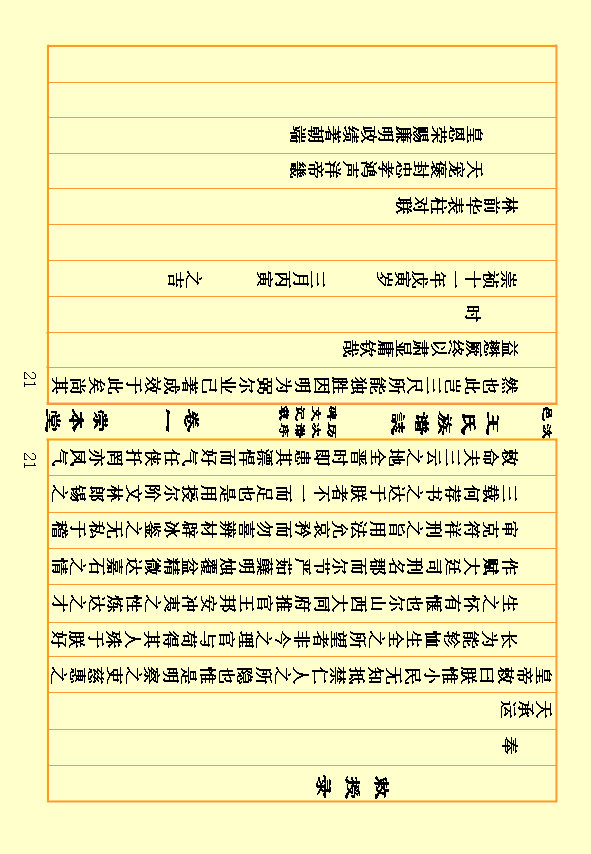 敕授录
奉
天承运
皇帝敕曰朕惟小民无知抵禁仁人之所隐也惟是明察之吏慈惠之
长为能轸恤生全之所望者非今之理官与荷得其人殊于朕好
生之怀有惬尔也山西大同府推官王邦安冲夷之性炼达之才
作赋大廷司刑名郡而尔节严茹蘖明烛覆盆精微达嘉石之情
审克符祥刑之旨用法允哀矜而勿喜辨材辟冰鉴之无私于稽
三载何荐书之达于朕者不一而足也是用授尔阶文林郎锡之
敕命夫三云之地全晋时即患其漂悍而好气任侠扞罔亦风气
21
汶邑
王氏族谱誌
历次谱序
碑文记载
卷一
崇本堂
21
然也此岂三尺所能独胜因明为弼尔业已著成效于此矣尚其
益懋厥终以肃亚庸钦哉
时
崇祯十一年戊寅岁 三月丙寅 之吉
林前华表柱对联
天宠褒封忠孝鸿声洋帝畿
皇恩荣赐廉明政绩著朝端